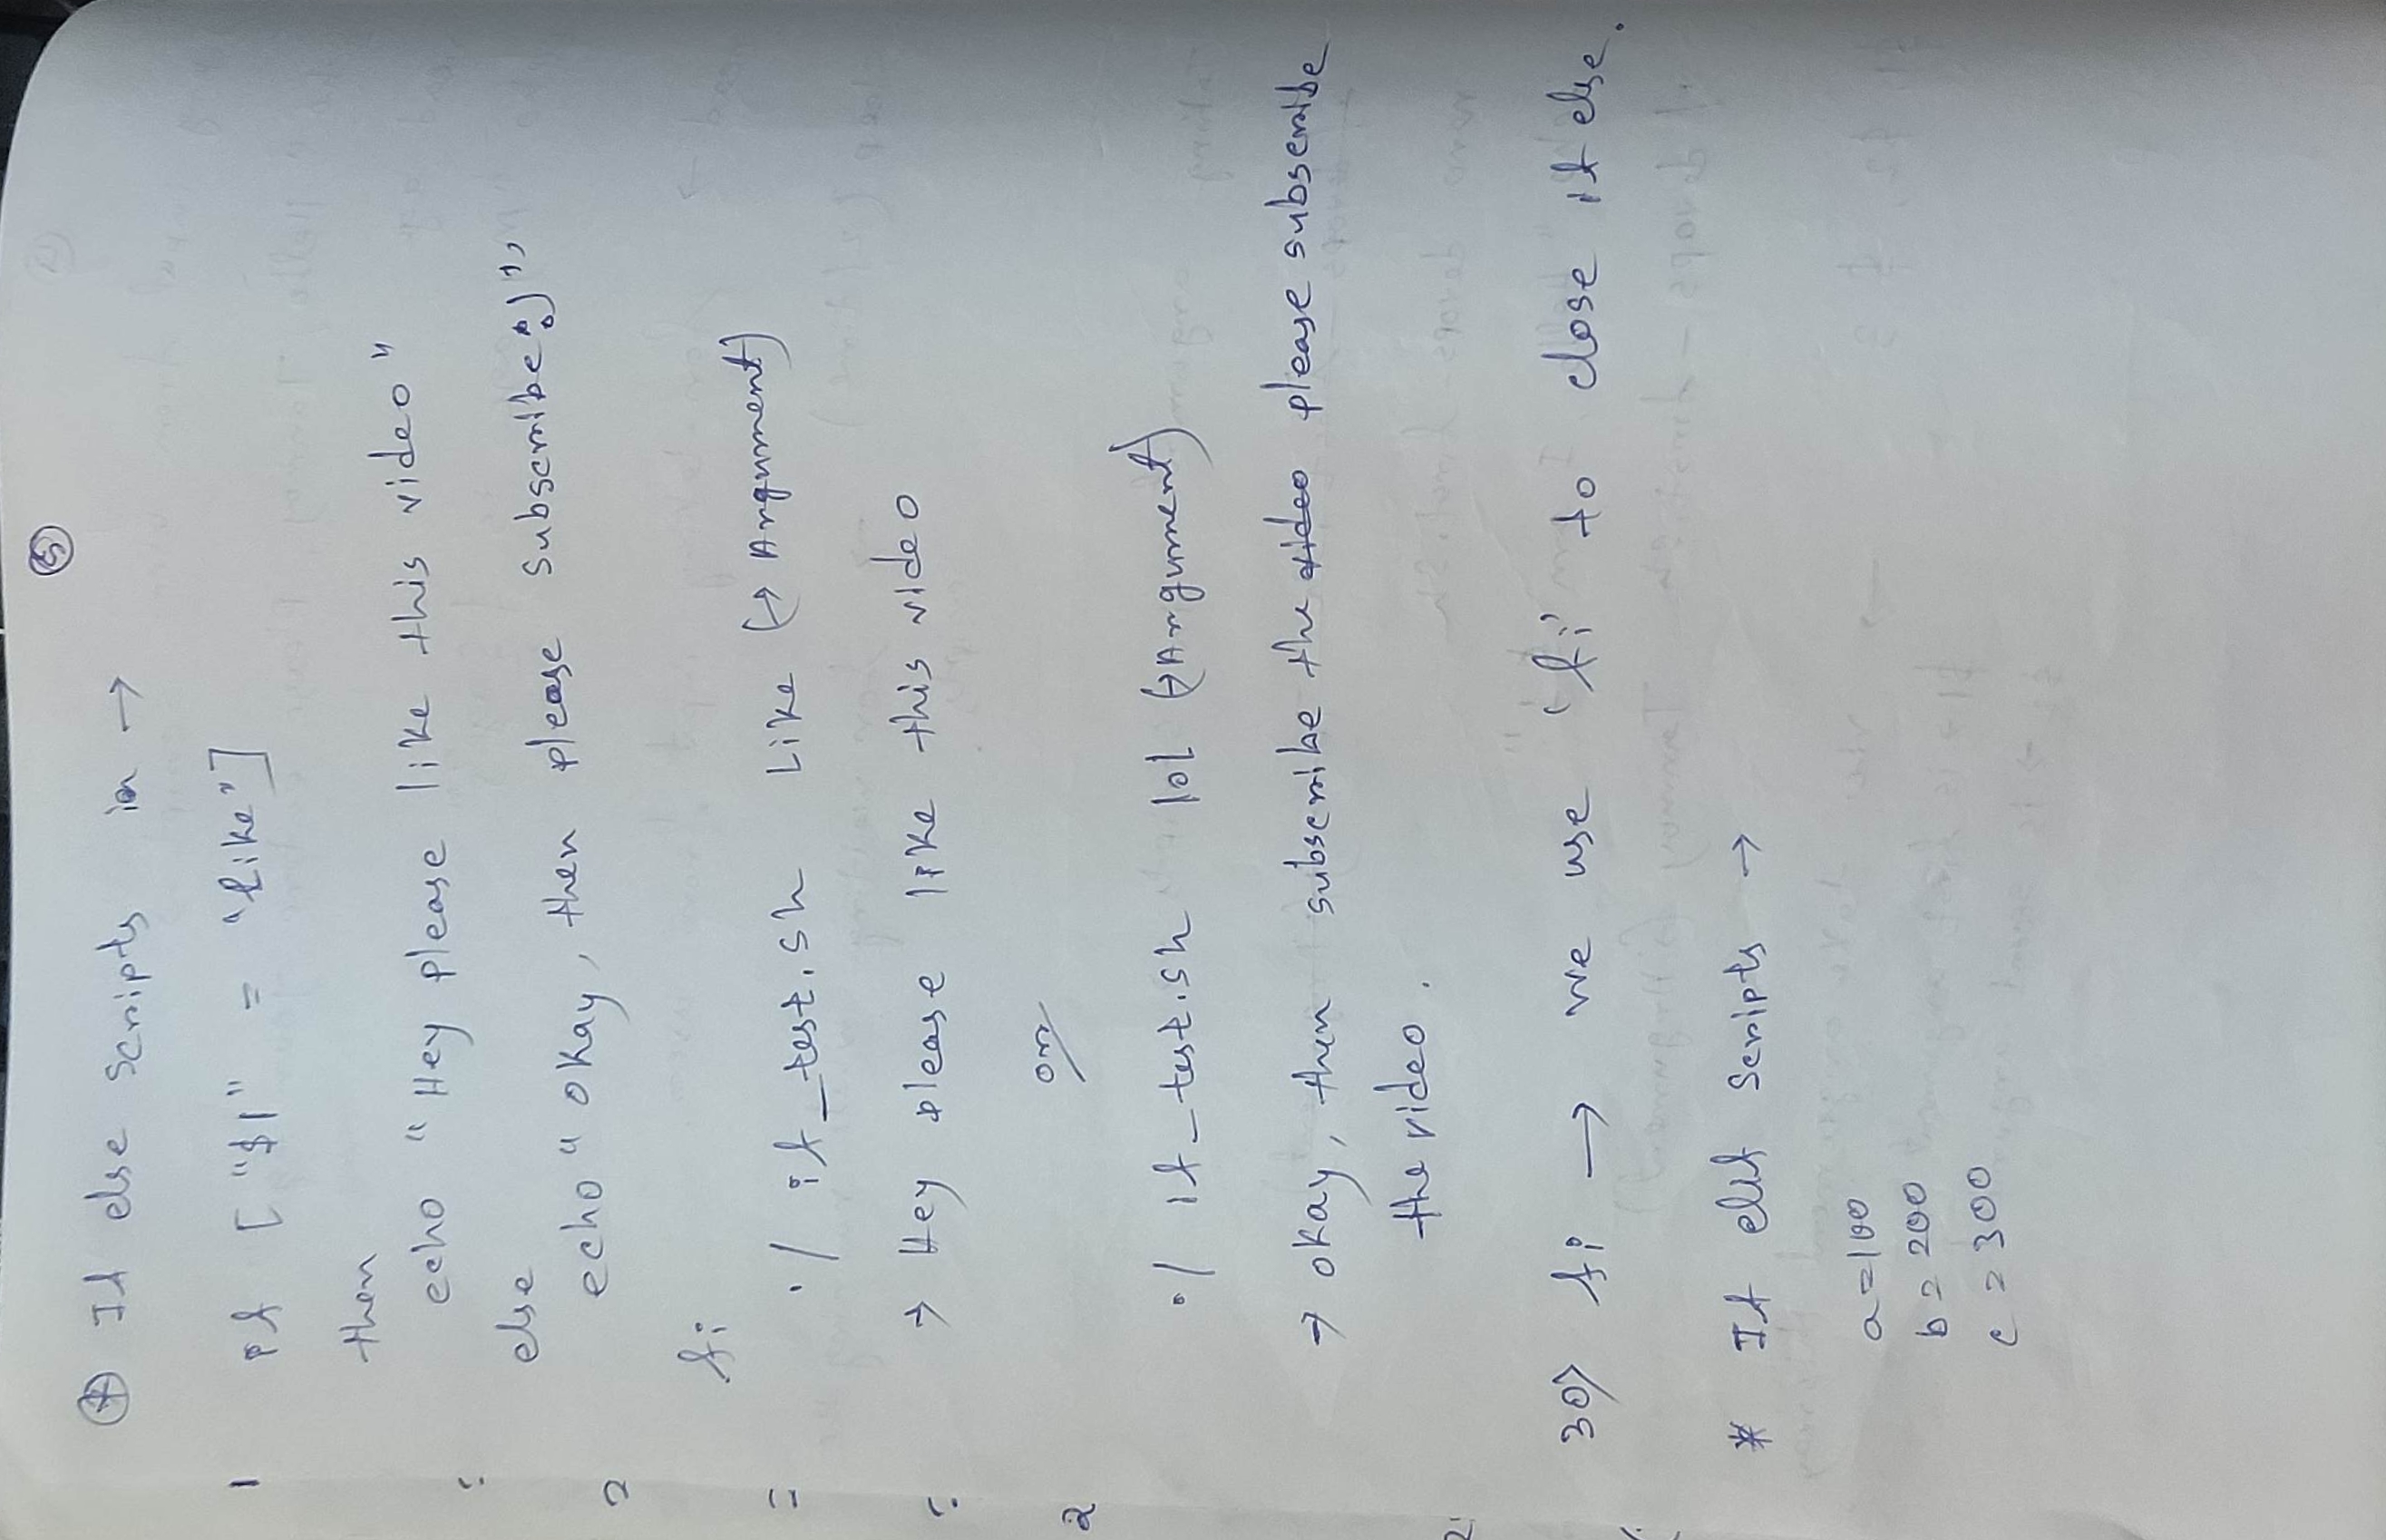 5
* If else Scripts in →
if ["$1" = "like"]
then
echo "Hey please like this video"
else
echo "okay, then please subscribe :)"
fi
./if_test.sh Like (→ Argument)
→ Hey please like this video
or
./if_test.sh lol (→ Argument)
→ okay, then subscribe the video please subscribe
the video.
30) fi → we use 'fi' to close if else.
* If elif Scripts →
a=100
b=200
c=300